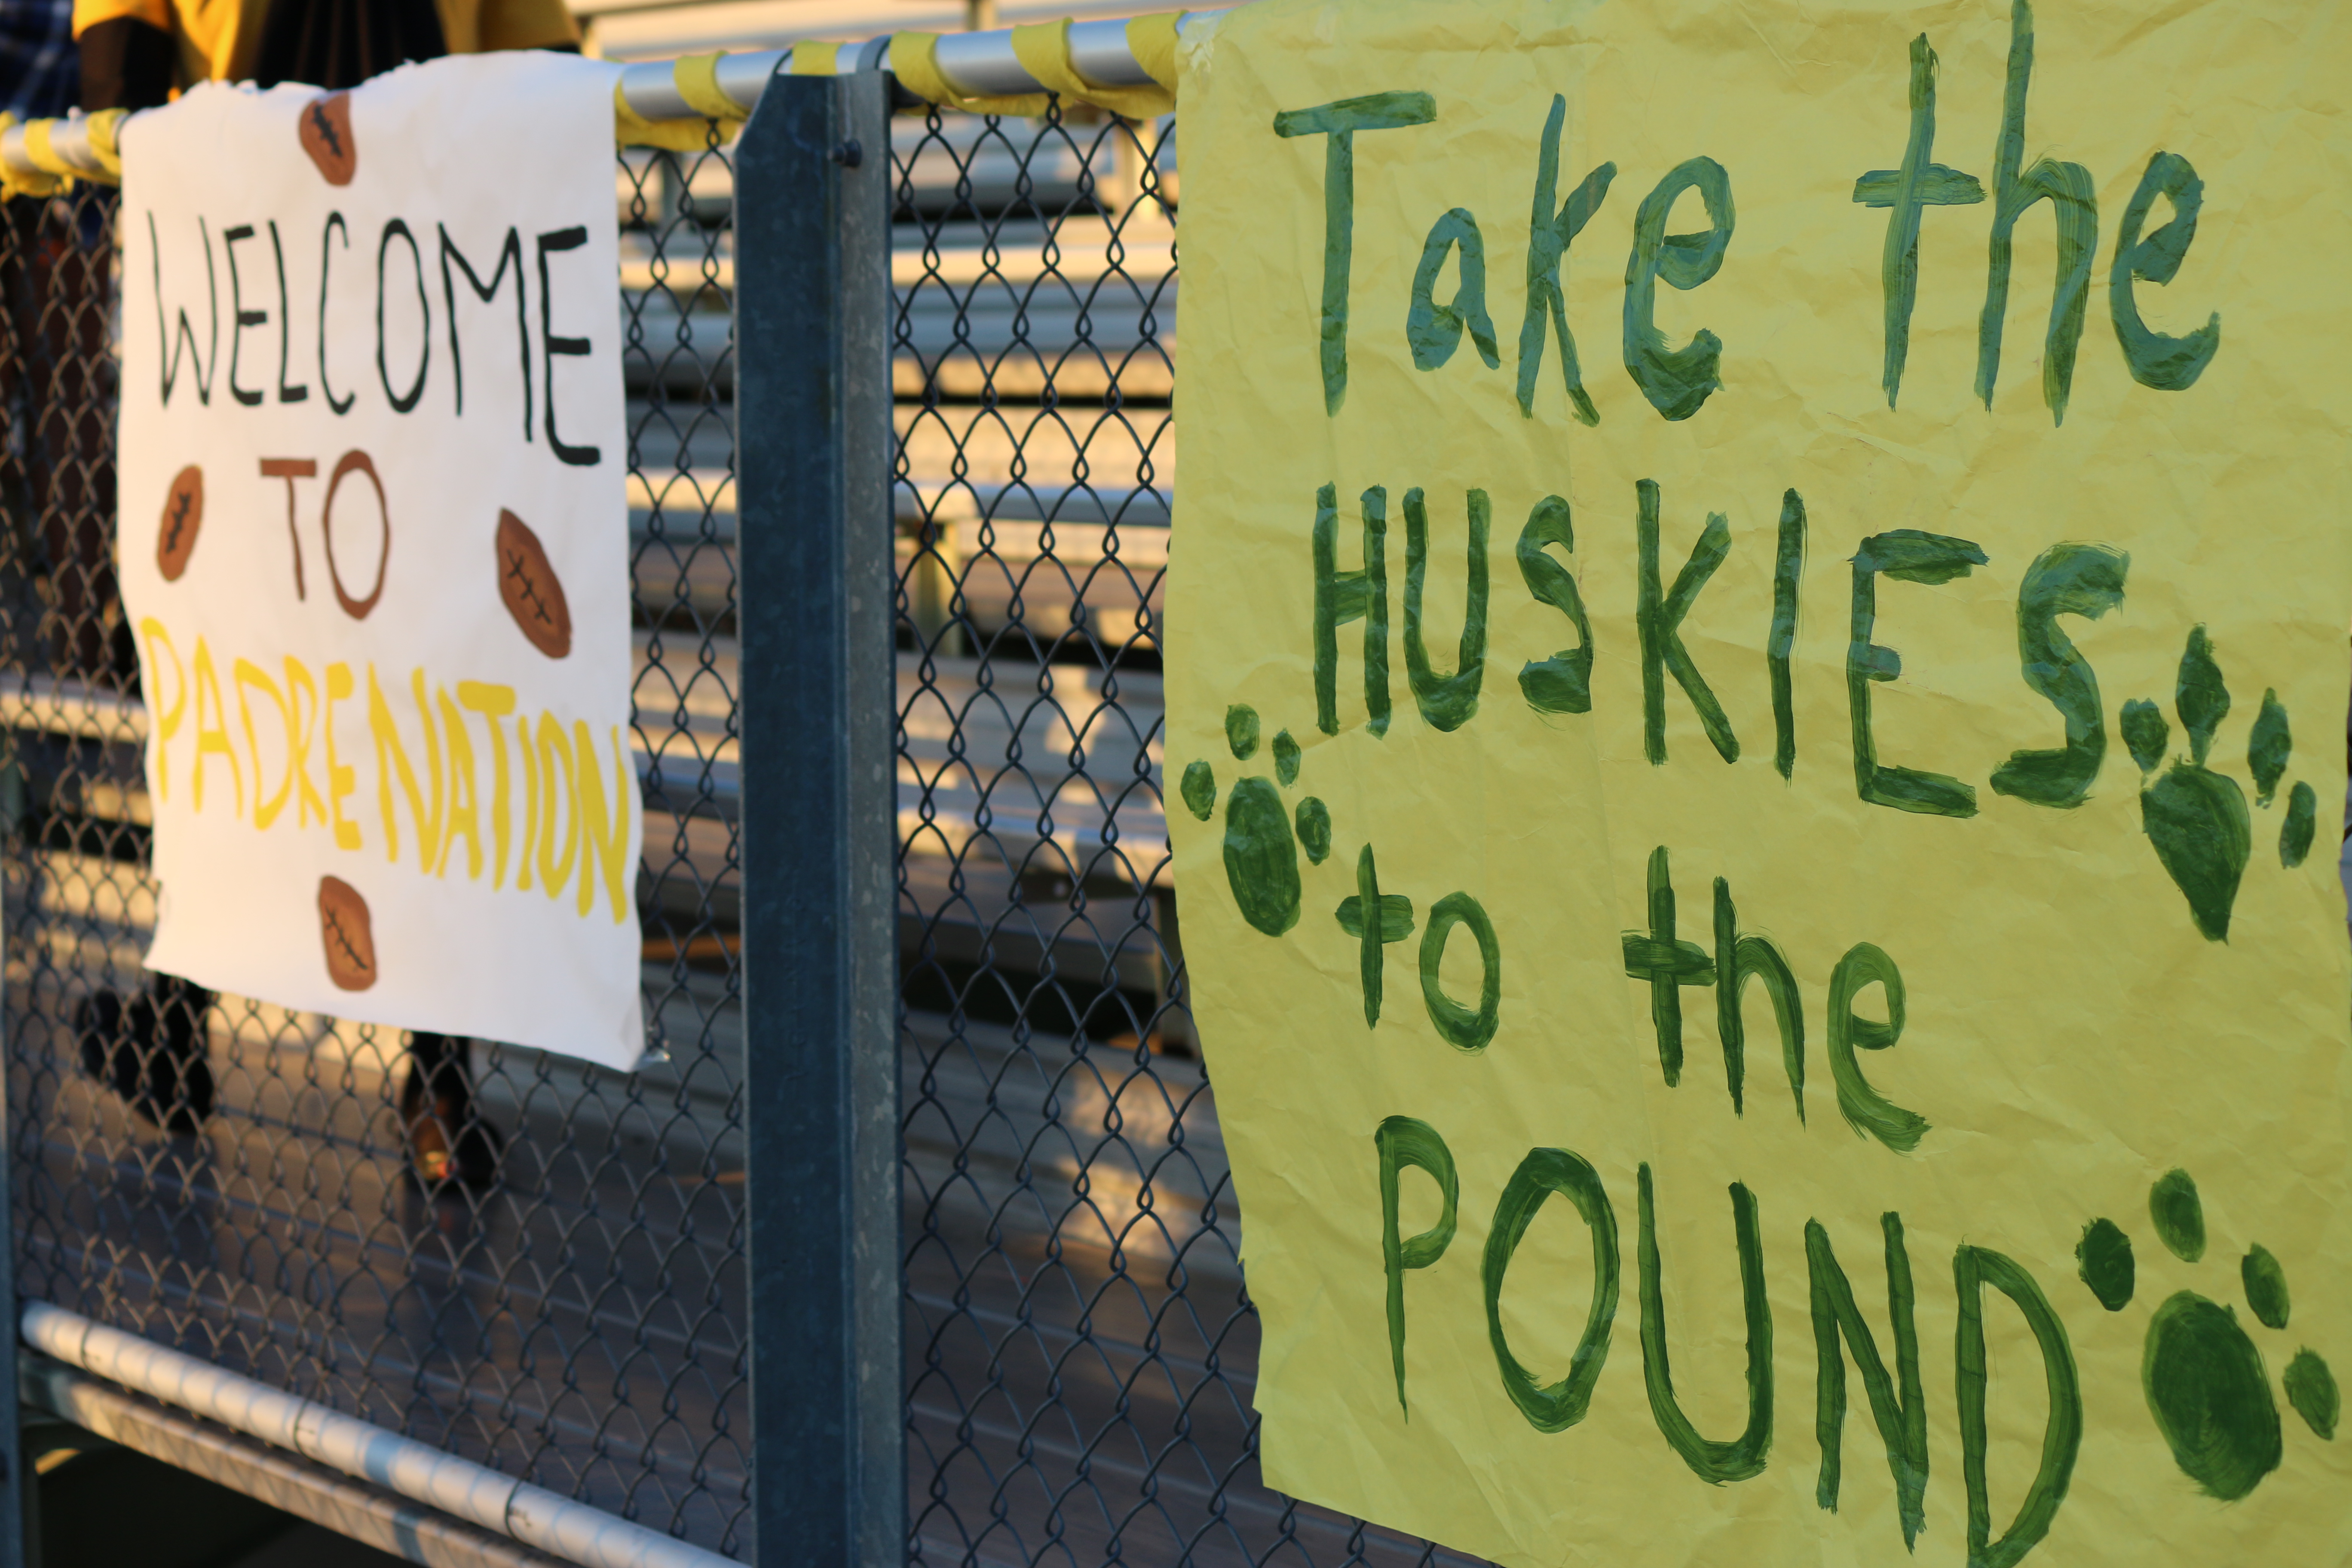 WELCOME
TO
PADRE NATION
Take the
HUSKIES
to the
POUND